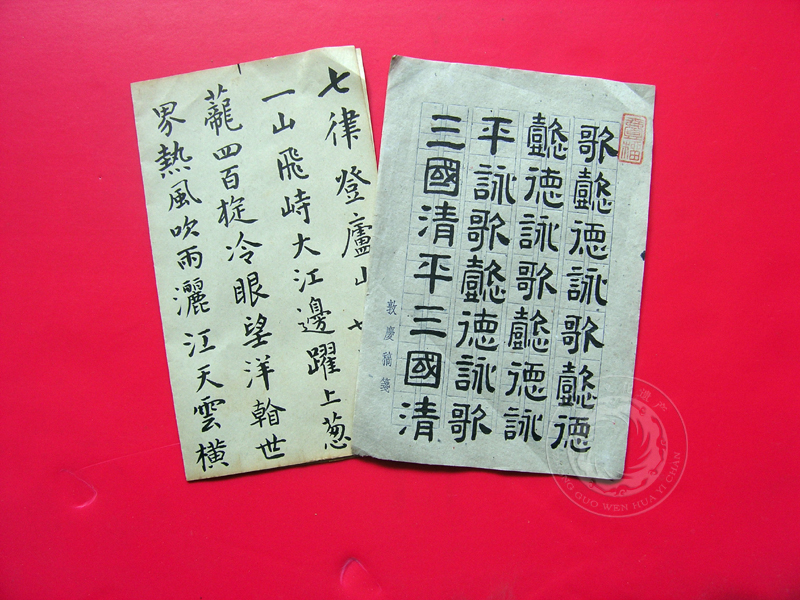 七律登廬山
一山飛峙大江邊躍上葱
蘢四百旋冷眼望洋翰世
界熱風吹雨灑江天雲橫
歌懿德詠歌懿德
懿德詠歌懿德詠
平詠歌懿德詠歌
三國清平三國清
慶稿箋
GUO WEN HUA YI CHAN